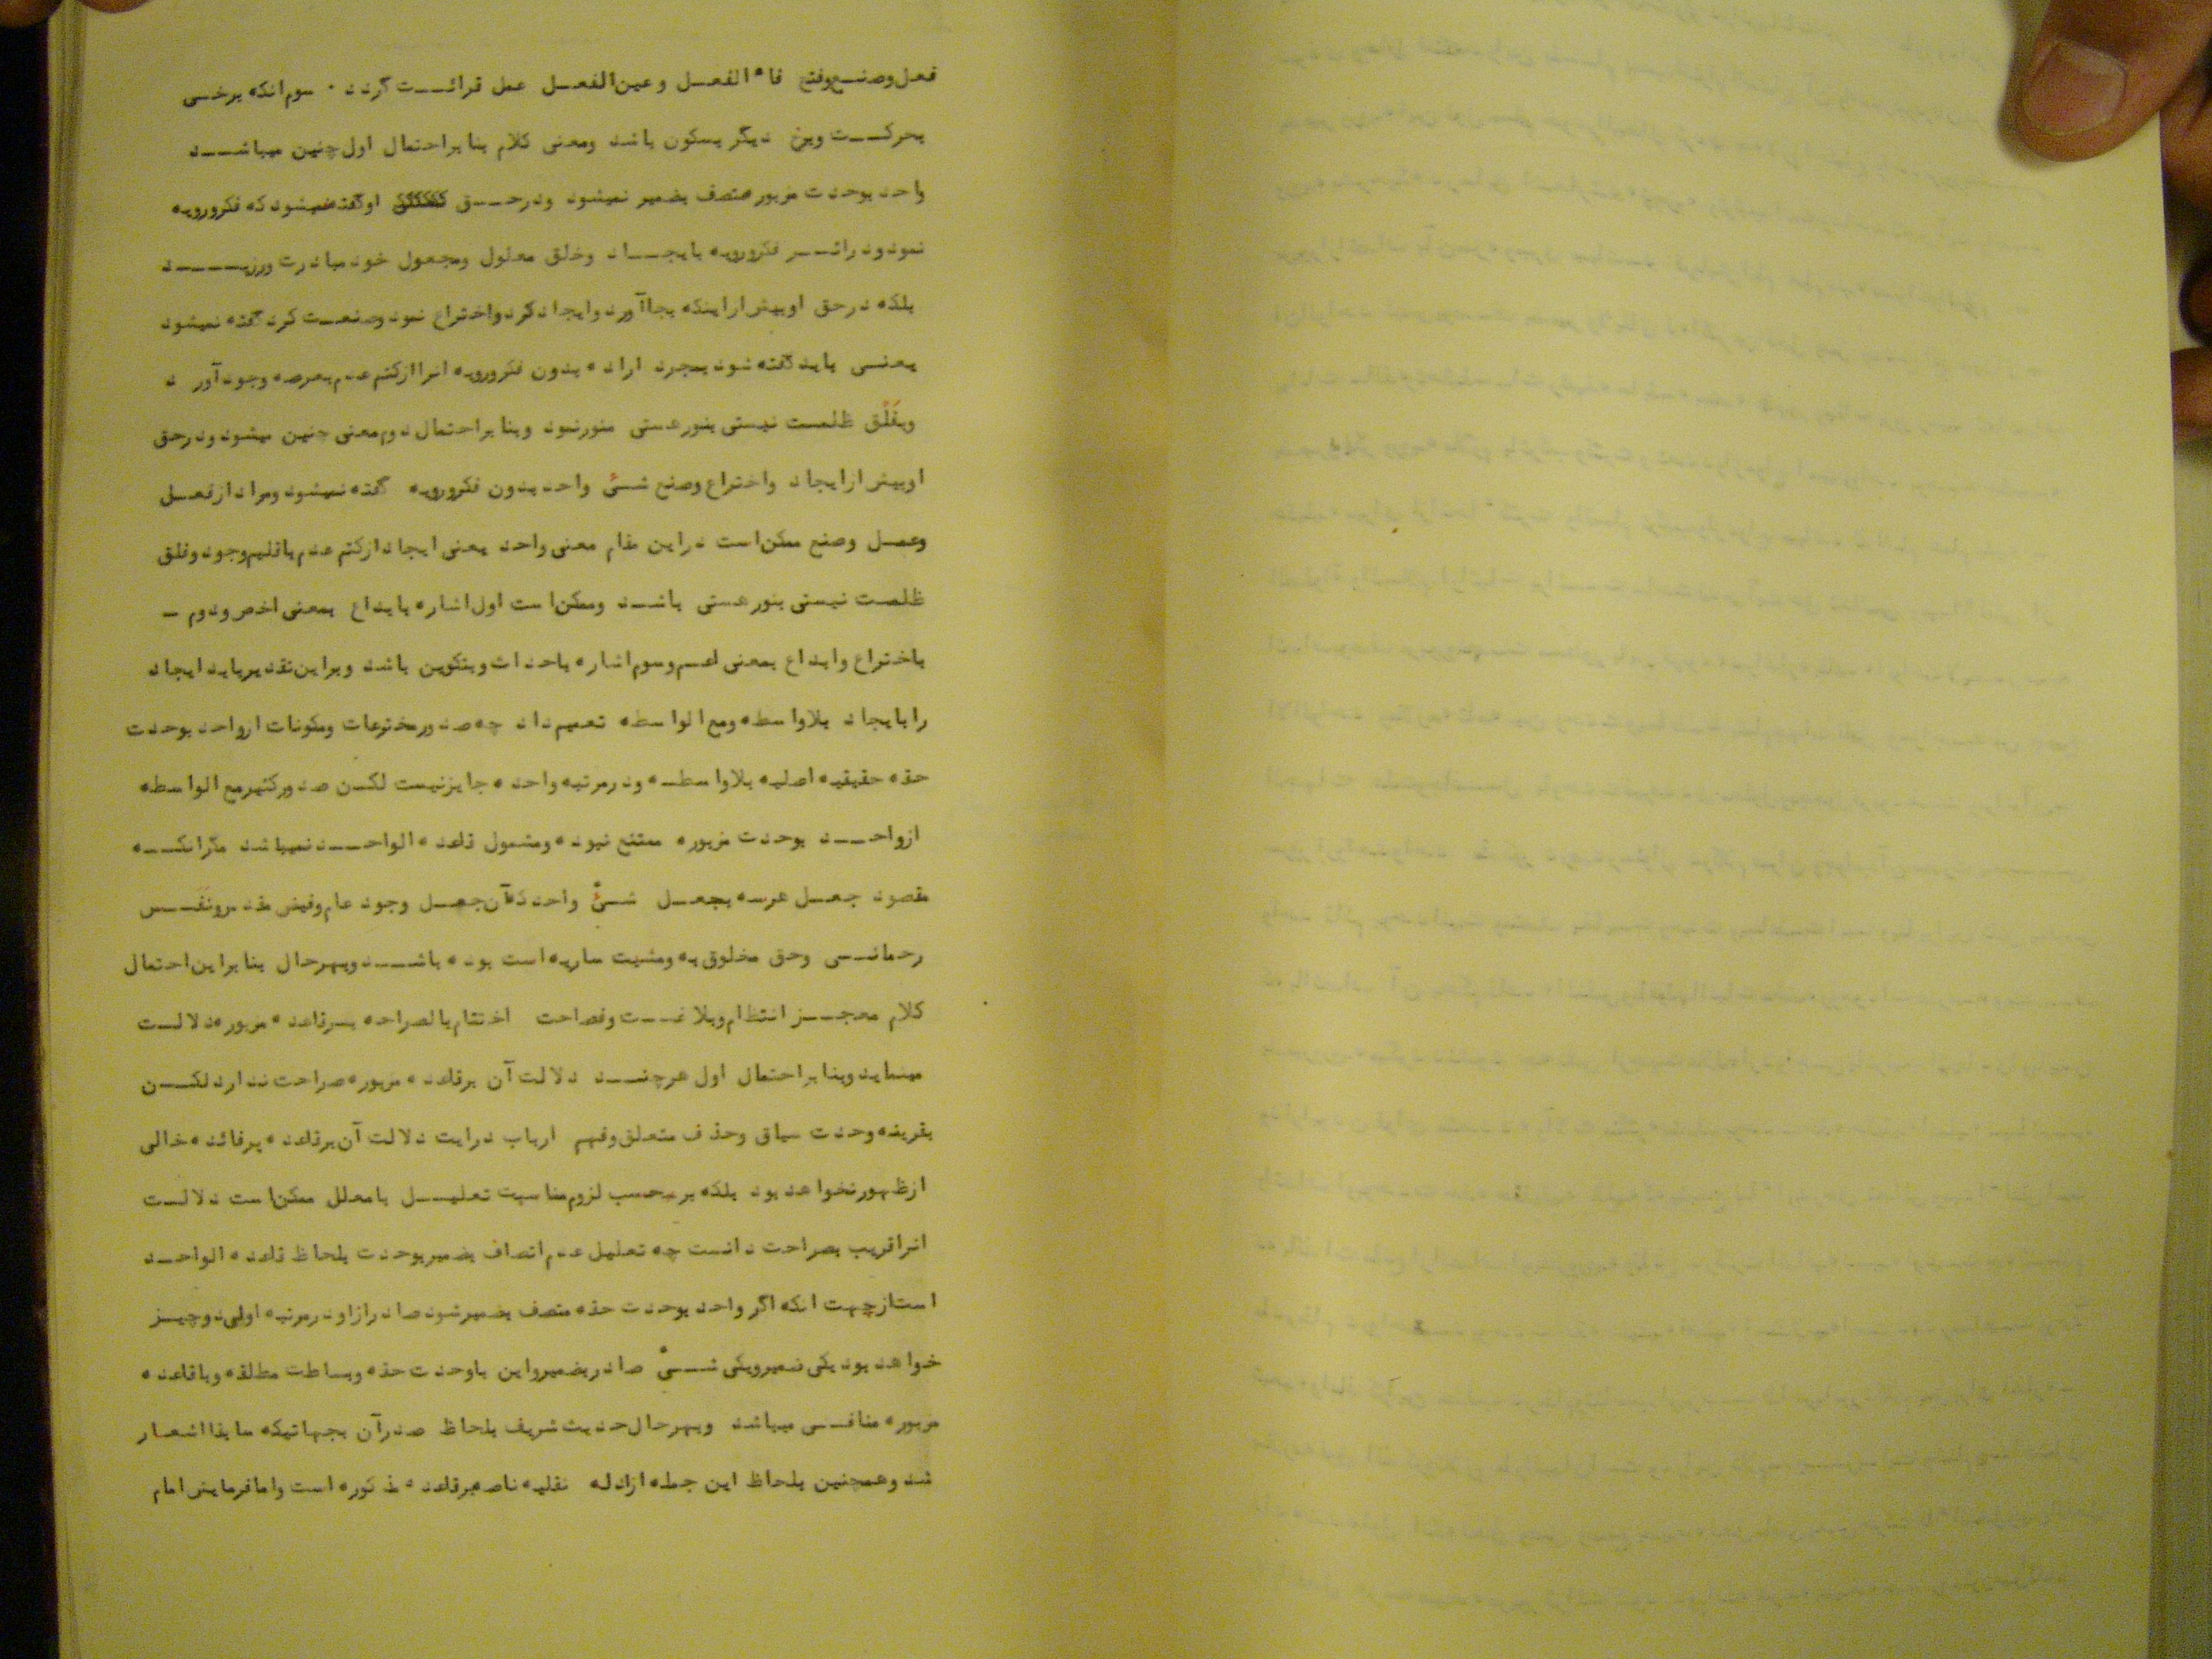 فعل وصنع وفتح فاء الفعل وعین الفعل عمل قرائت گردد . سوم انکه برخی
بحرکت وبرخ دیگر بسکون باشد ومعنی کلام بنا براحتمال اول چنین میباشد
واحد بوحدت مزبور متصف بضمیر نمیشود ودرحق او گفته نمیشود که فکرورویه
نمود ودراثر فکرورویه بایجاد وخلق معلول ومجعول خود مبادرت ورزید
بلکه درحق اوبیش ازاینکه بجاآورد وایجاد کرد واختراع نمود وصنعت کرد گفته نمیشود
یعنی باید گفته شود بمجرد اراده بدون فکرورویه انرا ازکتم عدم بعرصه وجود آورد
وبفلق ظلمت نیستی بنورهستی منورنمود وبنا براحتمال دوم معنی چنین میشود ودرحق
اوبیش ازایجاد واختراع وصنع شیئ واحد بدون فکرورویه گفته نمیشود ومراد ازفعل
وعمل وصنع ممکن است دراین مقام معنی واحد یعنی ایجاد ازکتم عدم باقلیم وجود وفلق
ظلمت نیستی بنورهستی باشد وممکن است اول اشاره بابداع بمعنی اخص ودوم –
باختراع وابداع بمعنی اعم وسوم اشاره باحداث وبتکوین باشد وبراین تقدیر باید ایجاد
را بایجاد بلاواسطه ومع الواسطه تعمیم داد چه صدور مخترعات ومکونات ازواحد بوحدت
حقه حقیقیه اصلیه بلاواسطه ودرمرتبه واحده جایزنیست لکن صدورکثیرمع الواسطه
ازواحد بوحدت مزبوره ممتنع نبوده ومشمول قاعده الواحد نمیباشد مگرانکه
مقصود جعل هرسه بجعل شیئ واحد که آن جعل وجود عام وفیض مقدس ونَفَس
رحمانی وحق مخلوق به ومشیت ساریه است بوده باشد وبهرحال بنا براین احتمال
کلام معجز انتظام وبلاغت وفصاحت اختتام بالصراحه برقاعده مزبوره دلالت
مینماید وبنا براحتمال اول هرچند دلالت آن برقاعده مزبوره صراحت ندارد لکن
بقرینه وحدت سیاق وحذف متعلق وفهم ارباب درایت دلالت آن برقاعده پرفائده خالی
ازظهورنخواهد بود بلکه برحسب لزوم مناسبت تعلیل بامعلل ممکن است دلالت
انرا قریب بصراحت دانست چه تعلیل عدم اتصاف بضمیر بوحدت بلحاظ قاعده الواحد
است ازجهت انکه اگر واحد بوحدت حقه متصف بضمیر شود صادر ازاو درمرتبه اولی دوچیز
خواهد بود یکی ضمیر ویکی شیئ صادربضمیر واین باوحدت حقه وبساطت مطلقه وباقاعده
مزبوره منافی میباشد وبهرحال حدیث شریف بلحاظ صدرآن بجهاتیکه سابقا اشعار
شد وهمچنین بلحاظ این جمله ازادله نقلیه ناصه برقاعده مذکوره است واما فرمایش امام